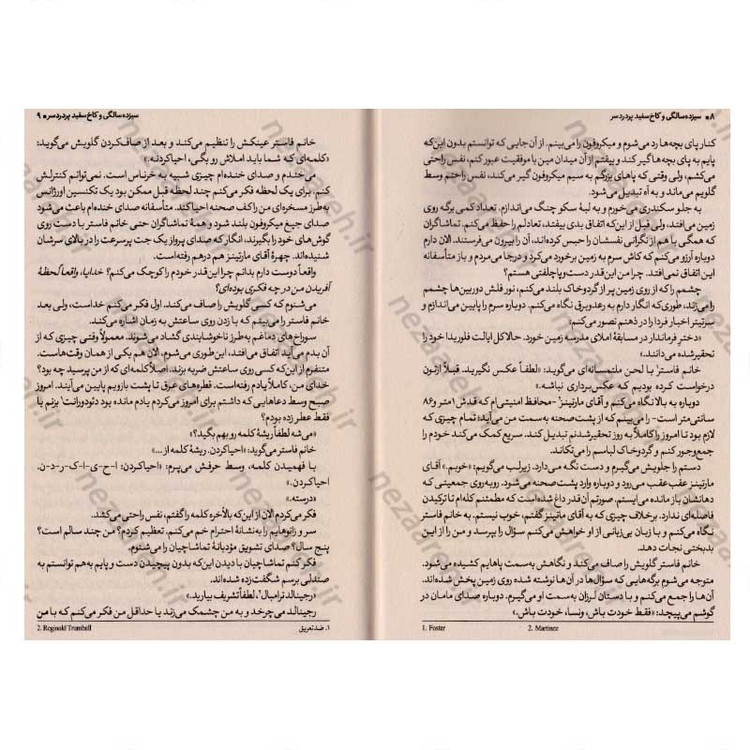 ۸■ سیزده‌سالگی و کاخ سفید پردردسر
کنار پای بچه‌ها رد می‌شوم و میکروفون را می‌بینم. از آن‌جایی که توانستم بدون این‌که
پایم به پای بچه‌ها گیر کند و بیفتم از آن میدان مین با موفقیت عبور کنم، نفس راحتی
می‌کشم، ولی وقتی که پاهای بزرگم به سیم میکروفون گیر می‌کند، نفس راحتم وسط
گلویم می‌ماند و به آه تبدیل می‌شود.
به جلو سکندری می‌خورم و به لبهٔ سکو چنگ می‌اندازم. تعداد کمی برگه روی
زمین می‌افتد، ولی قبل از این‌که اتفاق بدی بیفتد، تعادلم را حفظ می‌کنم. تماشاگران
که همگی با هم از نگرانی نفسشان را حبس کرده‌اند، آن را بیرون می‌فرستند. الان دارم
دوباره آرزو می‌کنم که کاش سرم به زمین برخورد می‌کرد و درجا می‌مردم و باز متأسفانه
این اتفاق نمی‌افتد. چرا من این‌قدر دست‌وپاچلفتی هستم؟
چشمم را که از روی زمین پر از گردوخاک بلند می‌کنم، نور فلش دوربین‌ها چشمم
را می‌زند، طوری‌که انگار دارم به رعدوبرق نگاه می‌کنم. دوباره سرم را پایین می‌اندازم و
سرتیتر اخبار فردا را در ذهنم تصور می‌کنم:
«دختر فرماندار در مسابقهٔ املای مدرسه زمین خورد. حالا کل ایالت فلوریدا خود را
تحقیرشده می‌دانند.»
خانم فاستر۱ با لحن ملتمسانه‌ای می‌گوید: «لطفاً عکس نگیرید. قبلاً ازتون
درخواست کرده بودیم که عکس‌برداری نباشه.»
دوباره به بالا نگاه می‌کنم و آقای مارتینز۲ -محافظ امنیتی‌ام که قدش ۱متر و۸۶
سانتی‌متر است- را می‌بینم که از پشت‌صحنه به‌سمت من می‌آید؛ تمام چیزی که
لازم بود تا امروز را کاملاً به روز تحقیرشدنم تبدیل کند. سریع کمک می‌کند خودم را
جمع‌وجور کنم و گردوخاک لباسم را می‌تکاند.
دستم را جلویش می‌گیرم و دست نگه می‌دارد. زیرلب می‌گویم: «خوبم.» آقای
مارتینز عقب‌عقب می‌رود و دوباره وارد پشت‌صحنه می‌شود. روبه‌روی جمعیتی که
دهانشان باز مانده می‌ایستم. صورتم آن‌قدر داغ شده است که مطمئنم کله‌ام تا ترکیدن
فاصله‌ای ندارد. برخلاف چیزی که به آقای مارتینز گفتم، خوب نیستم. به خانم فاستر
نگاه می‌کنم و با زبان بی‌زبانی از او خواهش می‌کنم سؤال را بپرسد و من را از این
بدبختی نجات دهد.
خانم فاستر گلویش را صاف می‌کند و نگاهش به‌سمت پاهایم کشیده می‌شود.
متوجه می‌شوم برگه‌هایی که سؤال‌ها در آن‌ها نوشته شده روی زمین پخش شده‌اند.
آن‌ها را جمع می‌کنم و با دستان لرزان به‌سمت او می‌گیرم. دوباره صدای مامان در
گوشم می‌پیچد: «فقط خودت باش، ونسا، خودت باش.»
1. Foster
2. Martinez
سیزده‌سالگی و کاخ سفید پردردسر ■ ۹
خانم فاستر عینکش را تنظیم می‌کند و بعد از صاف‌کردن گلویش می‌گوید:
«کلمه‌ای که شما باید املاش رو بگی، احیاکردنه.»
می‌خندم و صدای خنده‌ام چیزی شبیه به خرناس است. نمی‌توانم کنترلش
کنم. برای یک لحظه فکر می‌کنم چند لحظه قبل ممکن بود یک تکنسین اورژانس
به‌طرز مسخره‌ای من را کف صحنه احیا کند. متأسفانه صدای خنده‌ام باعث می‌شود
صدای جیغ میکروفون بلند شود و همهٔ تماشاگران حتی خانم فاستر با دست روی
گوش‌های خود را بگیرند، انگار که صدای پرواز یک جت پرسرعت را در بالای سرشان
شنیده‌اند. چهرهٔ آقای مارتینز هم درهم رفته است.
واقعاً دوست دارم بدانم چرا این‌قدر خودم را کوچک می‌کنم؟ خدایا، واقعاً لحظهٔ
آفریدن من در چه فکری بوده‌ای؟
می‌شنوم که کسی گلویش را صاف می‌کند. اول فکر می‌کنم خداست، ولی بعد
خانم فاستر را می‌بینم که با زدن روی ساعتش به زمان اشاره می‌کند.
سوراخ‌های دماغم به‌طرز ناخوشایندی گشاد می‌شوند. معمولاً وقتی چیزی که از
آن بدم می‌آید اتفاق می‌افتد، این‌طوری می‌شوم. الان هم یکی از همان وقت‌هاست.
متنفرم از این‌که کسی روی ساعتش ضربه بزند. اصلاً کلمه‌ای که از من پرسید چه بود؟
خدای من، کاملاً یادم رفته‌است. قطره‌های عرق تا پشت بازویم پایین می‌آیند. امروز
صبح وسط دعاهایی که داشتم برای امروز می‌کردم یادم مانده بود دئودورانت۱ بزنم یا
فقط عطر زده بودم؟
«می‌شه لطفاً ریشهٔ کلمه رو بهم بگید؟»
خانم فاستر می‌گوید: «احیاکردن. ریشهٔ کلمه از ...»
با فهمیدن کلمه، وسط حرفش می‌پرم: «احیاکردن: ا-ح-ی-ا-ک-ر-د-ن.
احیاکردن.»
«درسته.»
فکر می‌کردم الان از این‌که بالأخره کلمه را گفتم، نفس راحتی می‌کشد.
سر و زانوهایم را به‌نشانهٔ احترام خم می‌کنم. تعظیم کردم؟ من چند سالم است؟
پنج سال؟ صدای تشویق مؤدبانهٔ تماشاچیان را می‌شنوم.
فکر کنم تماشاچیان با دیدن این‌که بدون پیچیدن دست و پایم به‌هم توانستم به
صندلی برسم شگفت‌زده شده‌اند.
«رجینالد ترامبال۲، لطفاً تشریف بیارید.»
رجینالد می‌چرخد و به من چشمک می‌زند یا حداقل من فکر می‌کنم که با من
۱. ضد تعریق
2. Reginald Trumball
nezaareh.ir